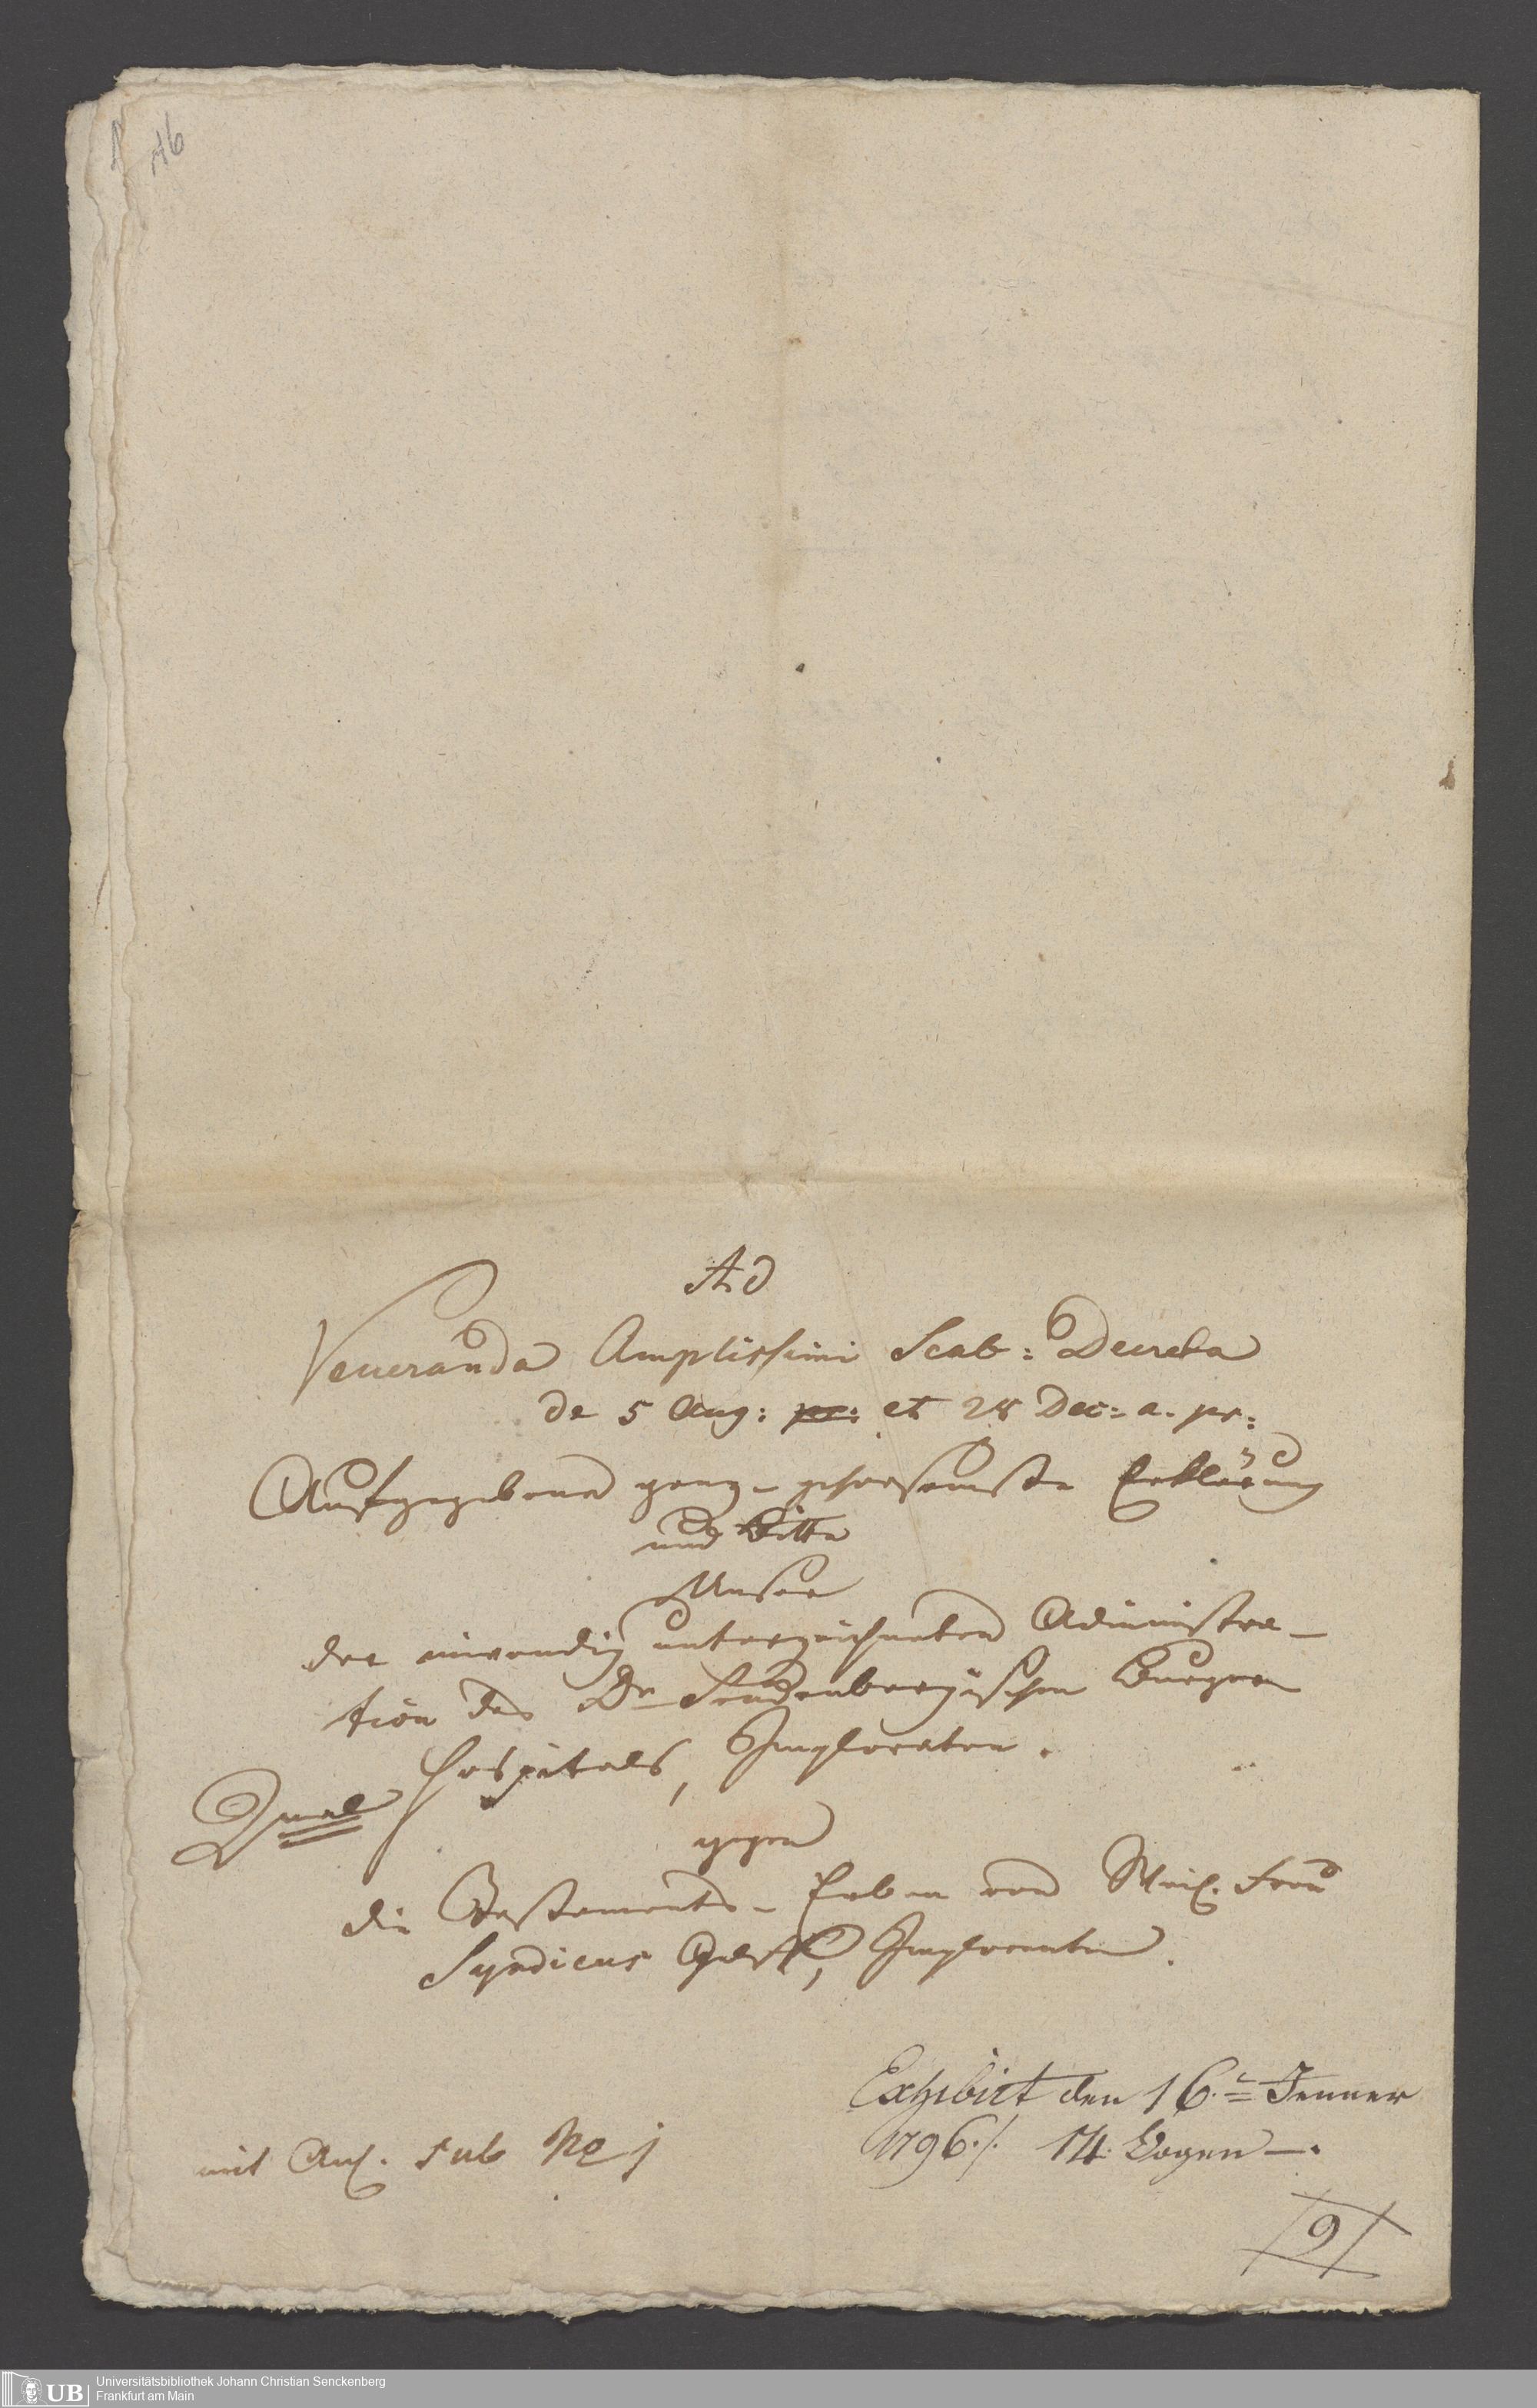 46
Ad
Veneranda Amplissimi Scab: Decreta
de 5 Aug: pr: et 28 Dec: a. pr:
Aufgegebene ganz-gehorsamste Erklärung
und Bitte
Unser
der inwendig unterzeichneten Administra-
tion des Dr Senckenbergischen Burger
Hospitals, Imploraten.
gegen
die Testaments-Erben von Weil. Frau
Syndicus Imploranten.
Exhibirt den 16. Jenner
1796./. 14. Bogen —.
mit Anl. sub No 1
9
UB
Universitätsbibliothek Johann Christian Senckenberg
Frankfurt am Main